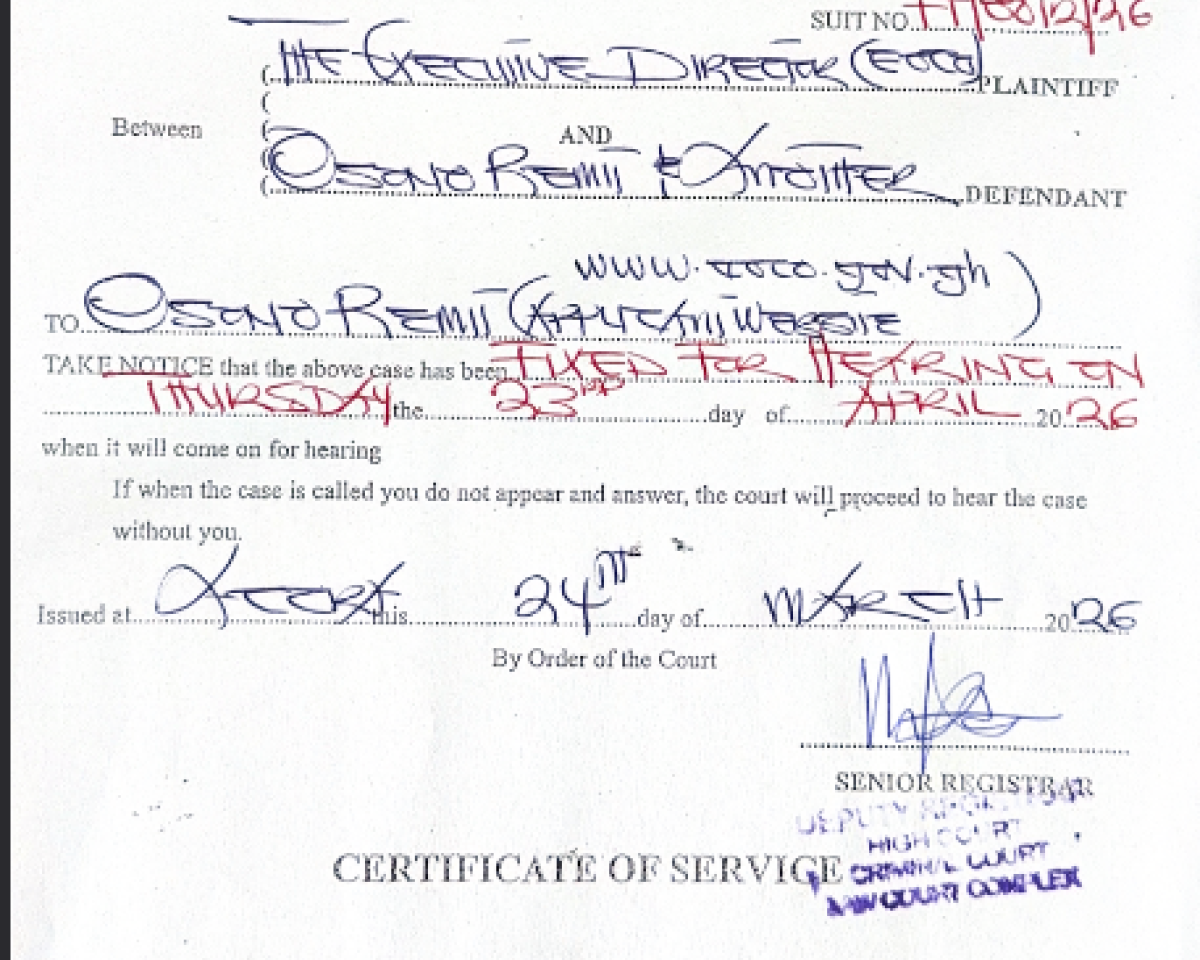 SUIT NO.
THE EXECUTIVE DIRECTOR (EOCO) PLAINTIFF
Between
AND
OSONO REMII & ANOTHER DEFENDANT
www.eoco.gov.gh
TO OSONO REMII (APPLICANT WEBSITE)
TAKE NOTICE that the above case has been FIXED FOR HEARING ON
THURSDAY the 23RD day of APRIL 2026
when it will come on for hearing
If when the case is called you do not appear and answer, the court will proceed to hear the case
without you.
Issued at ACCRA this 24TH day of MARCH 2026
By Order of the Court
SENIOR REGISTRAR
DEPUTY REGISTRAR
HIGH COURT
CERTIFICATE OF SERVICE
CRIMINAL COURT
LAW COURT COMPLEX